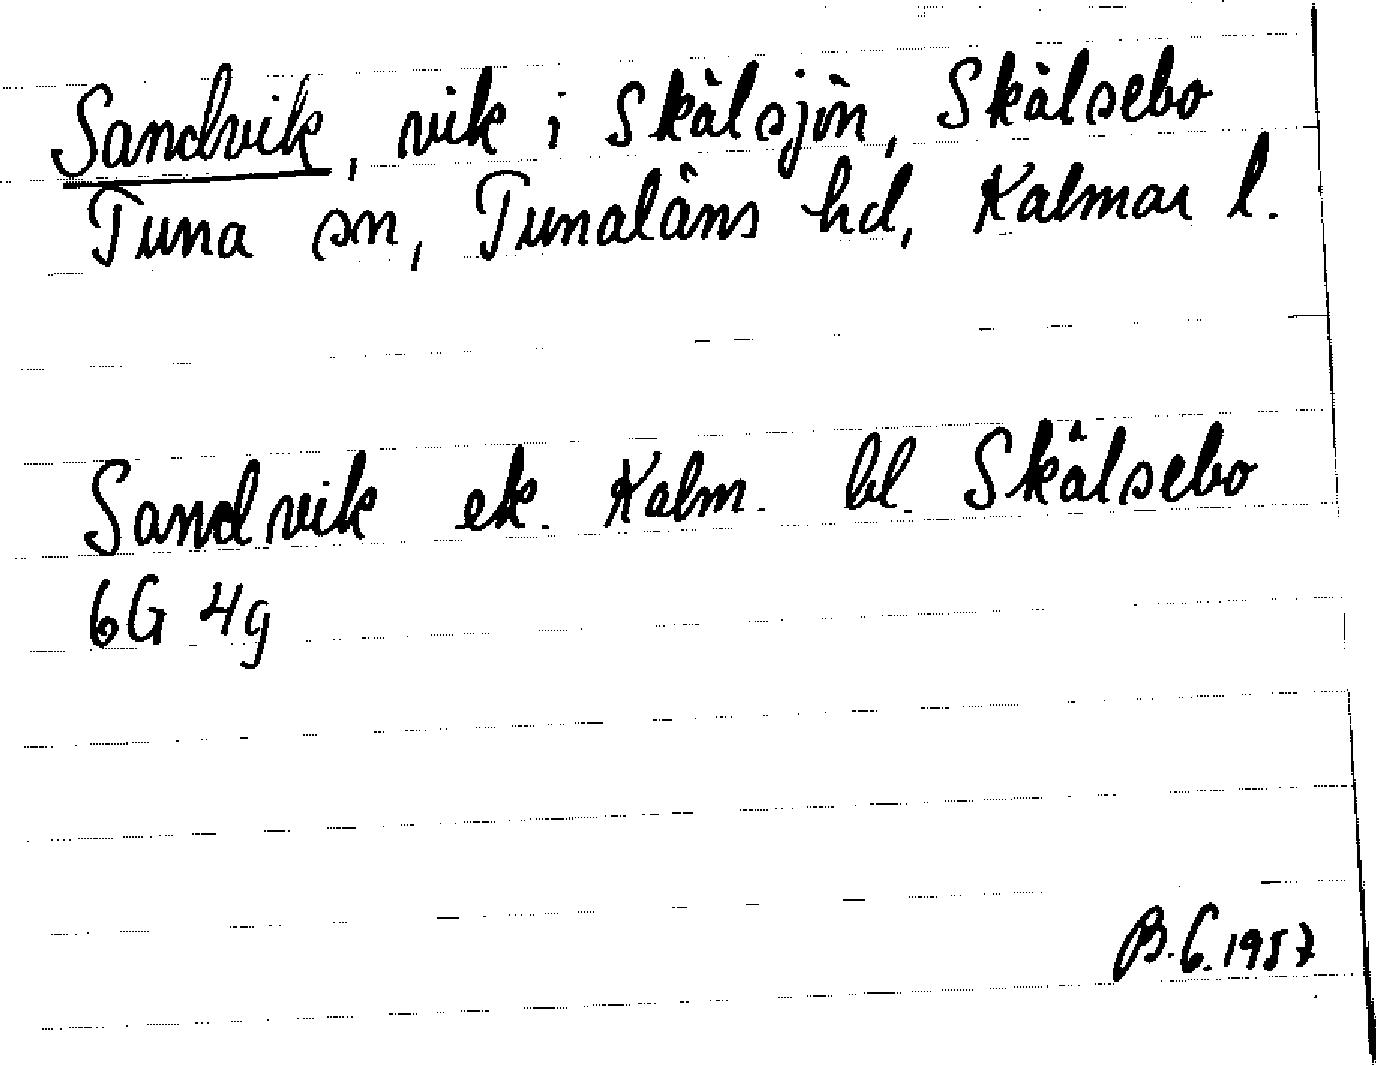 Sandvik, vik i Skälsjön, Skälsebo
Tuna sn, Tunaläns hd, Kalmar l.
Sandvik ek. Kalm. bl. Skälsebo
6G 4g
B.G. 1957